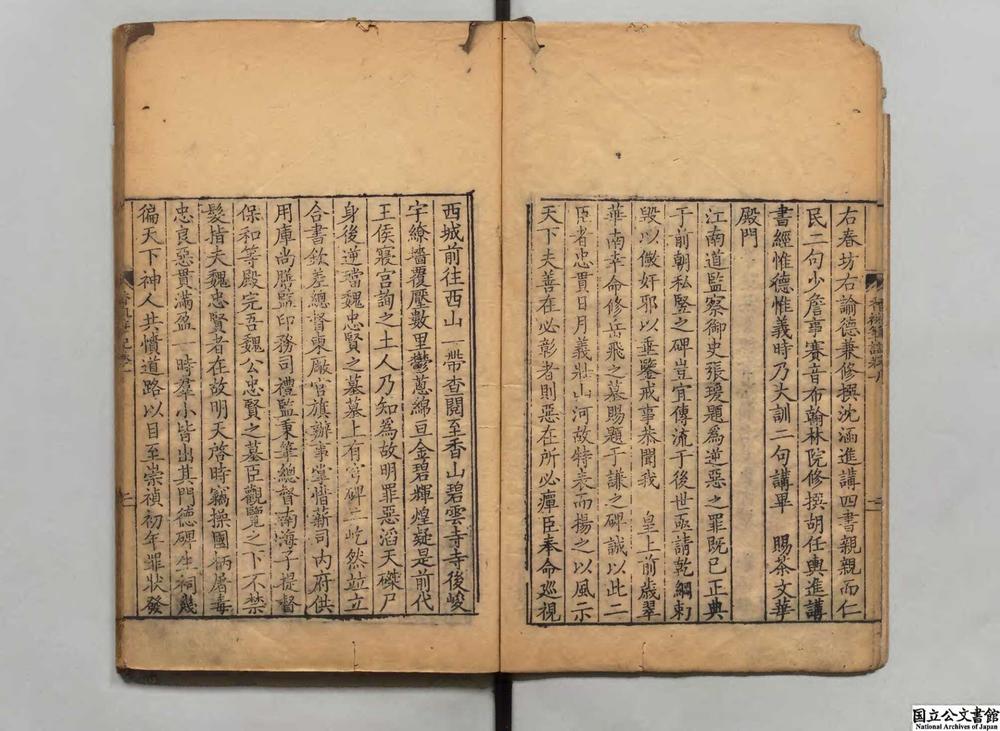 右春坊右諭德兼修撰沈涵進講四書親親而仁
民二句少詹事賽音布翰林院修撰胡任輿進講
書經惟德惟義時乃大訓二句講畢　賜茶文華
殿門
江南道監察御史張瑗題為逆惡之罪既已正典
于前朝私豎之碑豈宜傳流于後世亟請乾綱剌
毀以儆奸邪以垂鑒戒事恭聞我　皇上前歲翠
華南幸命修岳飛之墓賜題于謙之碑誠以此二
臣者忠貫日月義壯山河故特表而揚之以風示
天下夫善在必彰者則惡在所必癉臣奉命巡視
西城前往西山一帶查閱至香山碧雲寺寺後峻
宇繚墻覆壓數里鬱蔥綿亘金碧輝煌疑是前代
王侯寢宮詢之土人乃知為故明罪惡滔天磔尸
身後逆璫魏忠賢之墓墓上有穹碑二屹然竝立
合書欽差總督東廠官旗辦事掌惜薪司內府供
用庫尚膳監印務司禮監秉筆總督南海子提督
保和等殿完吾魏公忠賢之墓臣觀覽之下不禁
髮指夫魏忠賢者在故明天啓時竊操國柄屠毒
忠良惡貫滿盈一時羣小皆出其門德碑生祠幾
徧天下神人共憤道路以目至崇禎初年罪狀發
二
國立公文書館
National Archives of Japan